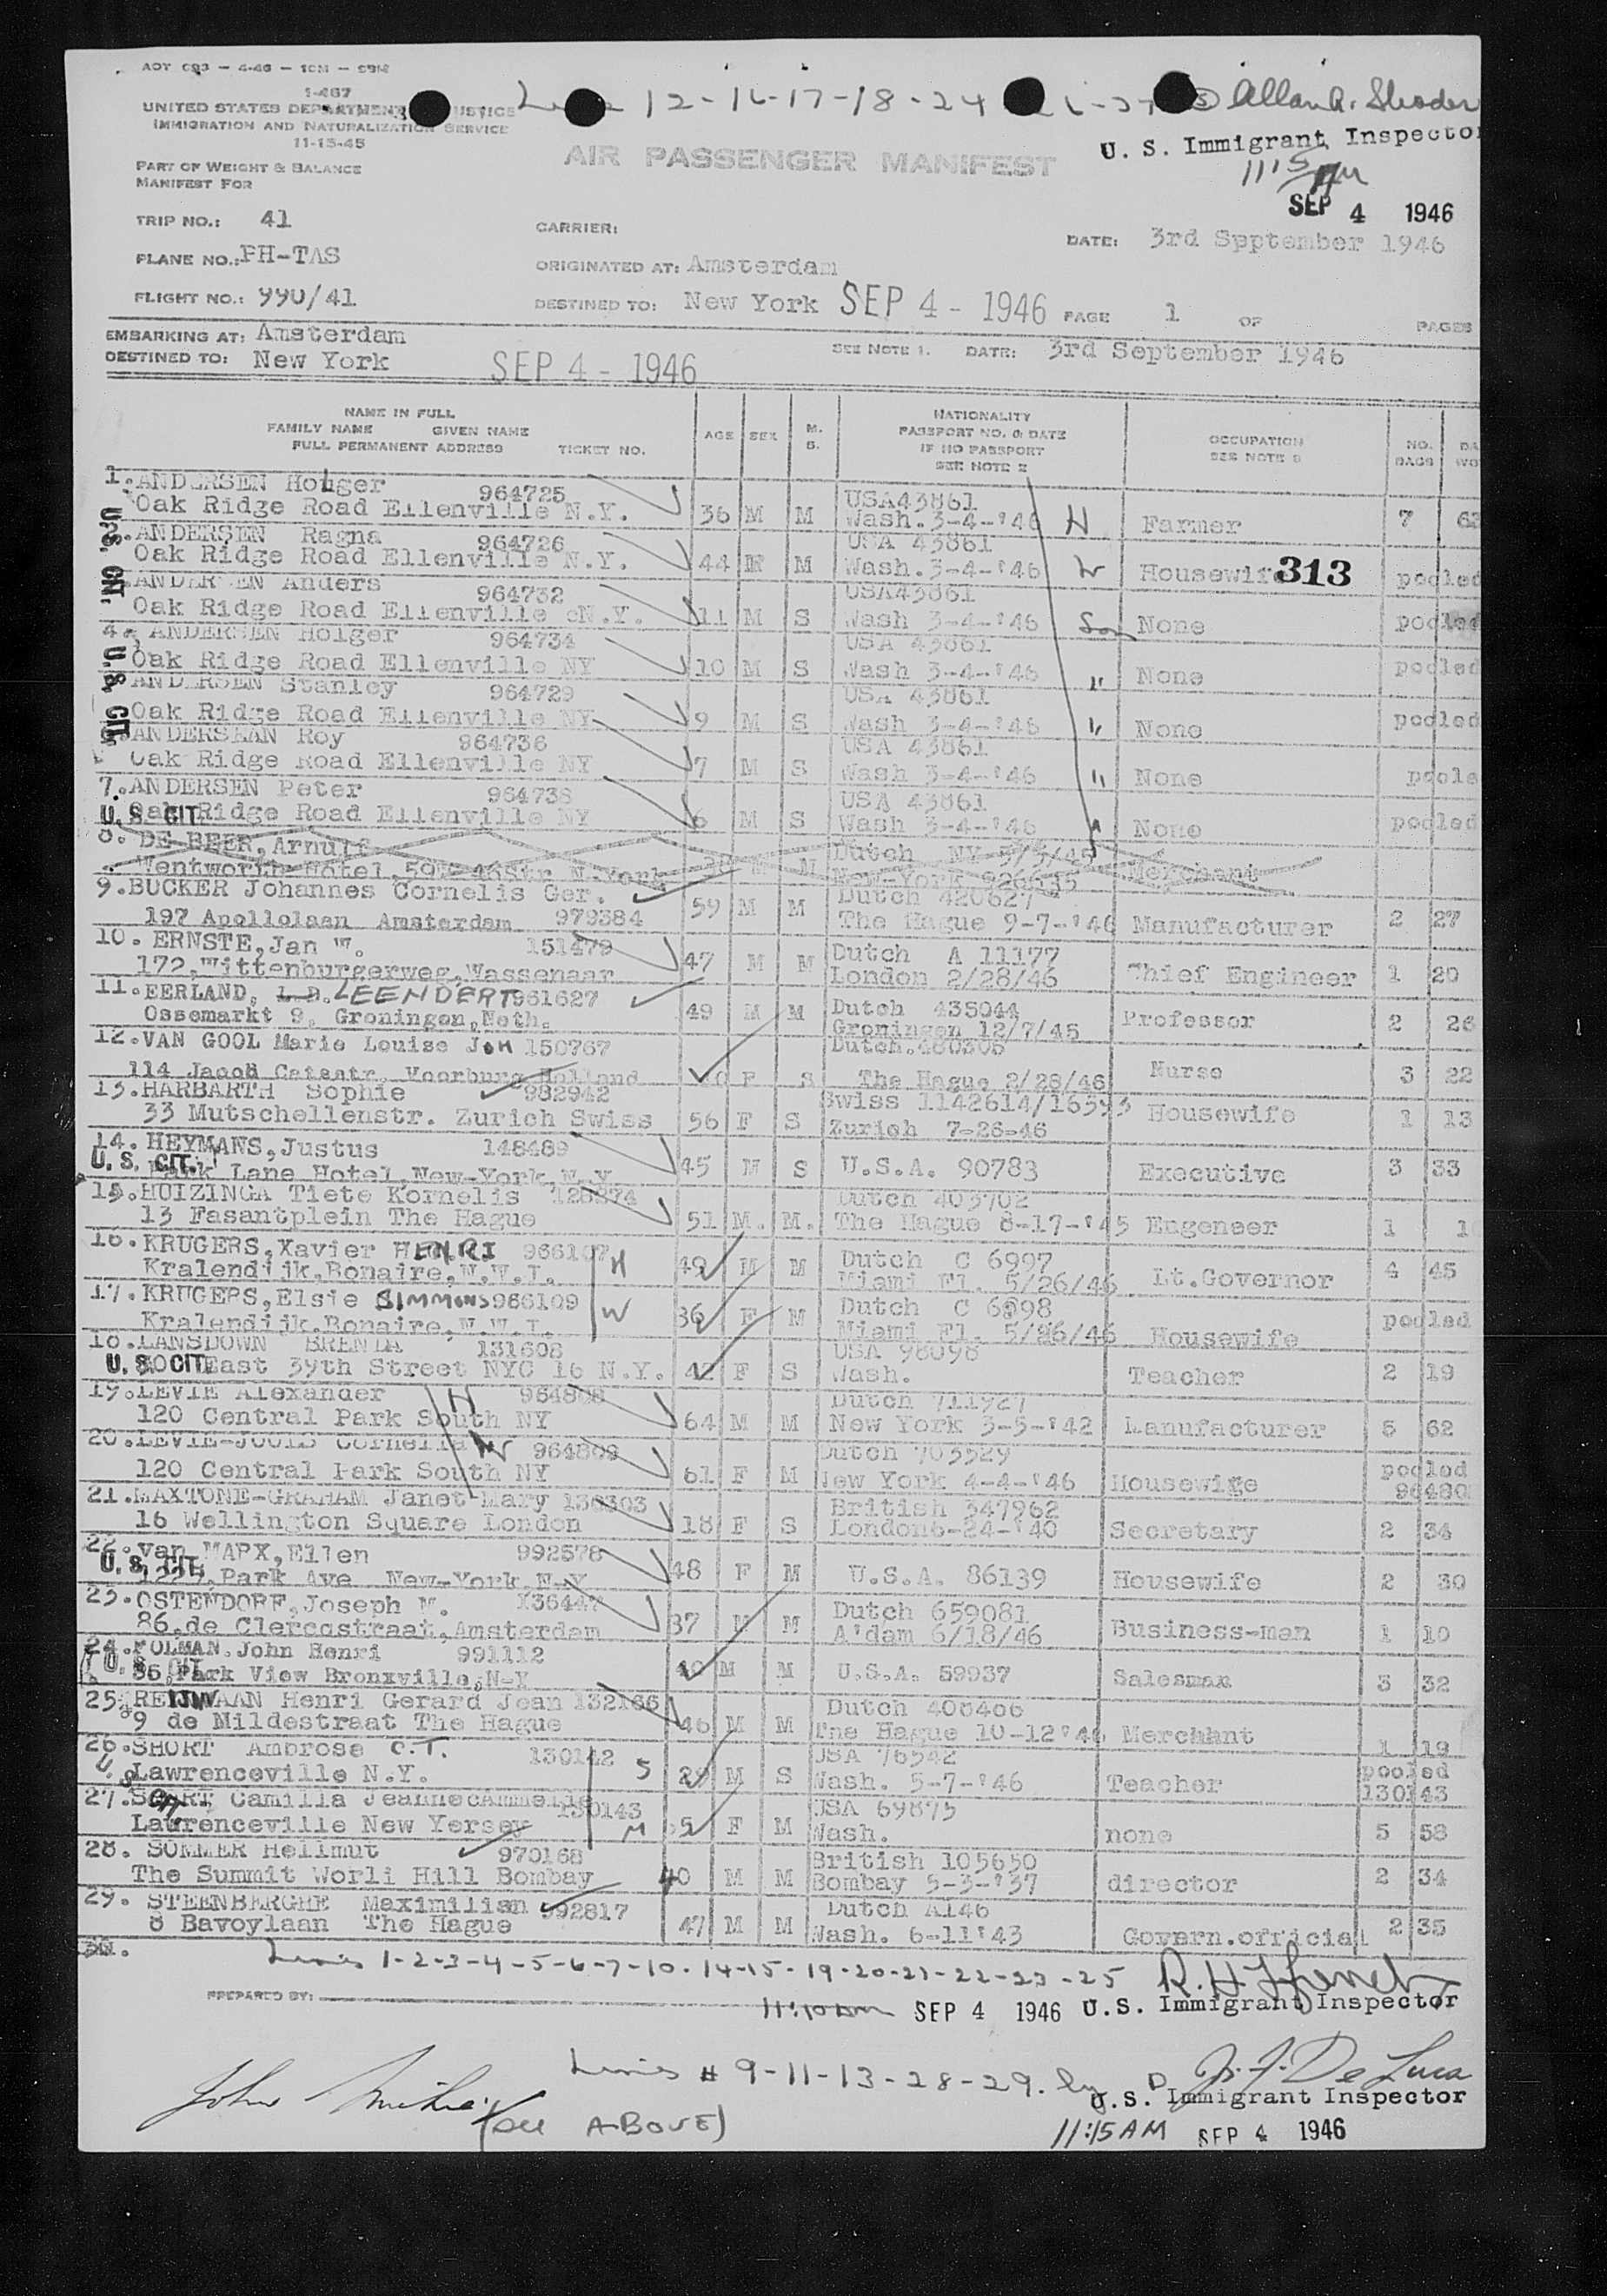 1-467
UNITED STATES DEPARTMENT JUSTICE
IMMIGRATION AND NATURALIZATION SERVICE
11-15-45
12-16-17-18-24
U. S. Immigrant Inspector
AIR PASSENGER MANIFEST
PART OF WEIGHT & BALANCE
MANIFEST FOR
SEP 4 1946
TRIP NO.: 41
CARRIER:
DATE: 3rd Spptember 1946
PLANE NO.: PH-TAS
ORIGINATED AT: Amsterdam
FLIGHT NO.: 990/41
DESTINED TO: New York SEP 4 - 1946 PAGE 1 OF PAGES
EMBARKING AT: Amsterdam
SEE NOTE 1. DATE: 3rd September 1946
DESTINED TO: New York SEP 4 - 1946
NAME IN FULL
FAMILY NAME GIVEN NAME
FULL PERMANENT ADDRESS TICKET NO.
AGE SEX M. S.
NATIONALITY
PASSPORT NO. & DATE
IF NO PASSPORT
SEE NOTE 2
OCCUPATION
SEE NOTE 3
NO. BAGS
1. ANDERSEN Holger 964725 USA43861
Oak Ridge Road Ellenville N.Y. 36 M M Wash. 3-4-'46 H Farmer 7
ANDERSEN Ragna 964726 USA 43861
Oak Ridge Road Ellenville N.Y. 44 F M Wash. 3-4-'46 W Housewife 313 pooled
Anders 964732 USA43861
Oak Ridge Road Ellenville N.Y. 11 M S Wash 3-4-'46 Son None pooled
4. ANDERSEN Holger 964734 USA 43861
Oak Ridge Road Ellenville NY 10 M S Wash 3-4-'46 " None pooled
ANDERSEN Stanley 964729 USA 43861
Oak Ridge Road Ellenville NY 9 M S Wash 3-4-'46 " None pooled
ANDERSEAN Roy 964736 USA 43861
Oak Ridge Road Ellenville NY 7 M S Wash 3-4-'46 " None
7. ANDERSEN Peter 964738 USA 43861
U. S. CIT. Oak Ridge Road Ellenville NY 6 M S Wash 3-4-'46 None pooled
8. DE BEER, Arnulf Dutch NY 3/3/45
Wentworth Hotel, 59W 46Str N.York M New-York Merchant
9. BUCKER Johannes Cornelis Ger. Dutch 420627
197 Apollolaan Amsterdam 979384 59 M M The Hague 9-7-'46 Manufacturer 2 27
10. ERNSTE, Jan W. 151479 Dutch A 11177
172, Wittenburgerweg, Wassenaar 47 M M London 2/28/46 Chief Engineer 1 20
11. EERLAND, L.D. LEENDERT 961627 Dutch 435044
Ossemarkt 9, Groningen, Neth. 49 M M Groningen 12/7/45 Professor 2 26
12. VAN GOOL Marie Louise 150767 Dutch.
114 Jacob Catsstr. Voorburg Holland F S The Hague 2/28/46 Nurse 3 22
13. HARBARTH Sophie 982942 Swiss
33 Mutschellenstr. Zurich Swiss 56 F S Zurich 7-26-46 Housewife 1 13
14. HEYMANS, Justus 148489
U. S. CIT. Park Lane Hotel, New-York, N.Y 45 M S U.S.A. 90783 Executive 3 33
15. HUIZINGA Tiete Kornelis Dutch 403702
13 Fasantplein The Hague 51 M. M. The Hague 8-17-'45 Engeneer 1
16. KRUGERS, Xavier HENRI H Dutch C 6997
Kralendijk, Bonaire, N.W.I. 49 M M Miami Fl. 5/26/46 Lt.Governor 4 45
17. KRUGERS, Elsie SIMMONS 966109 W Dutch C
Kralendijk, Bonaire, N.W.I. 36 F M Miami Fl. 5/26/46 Housewife pooled
18. LANSDOWN BRENDA 131608 USA 98098
U. S. CIT. East 39th Street NYC 16 N.Y. 42 F S Wash. Teacher 2 19
19. LEVIE Alexander H 964808 Dutch 711927
120 Central Park South NY 64 M M New York 3-5-'42 Lanufacturer 5 62
20. LEVIE- Cornelia W 964809 Dutch 703529
120 Central Park South NY 61 F M New York 4-4-'46 Housewige pooled
21. MAXTONE-GRAHAM Janet Mary 130303 British 347962
16 Wellington Square London 18 F S London6-24-'40 Secretary 2 34
22. van MARX, Ellen 992578
U. S. CIT. Park Ave New-York, N-Y 48 F M U.S.A. 86139 Housewife 2 30
23. OSTENDORF, Joseph M. Dutch 659081
86, de Clercqstraat, Amsterdam 37 M M A'dam 6/18/46 Business-man 1 10
24. John Henri 991112
Park View Bronxville, N-Y M M U.S.A. 59937 Salesman 3 32
25. REIJNVAAN Henri Gerard Jean 132166 Dutch 406466
9 de Mildestraat The Hague 46 M M The Hague 10-12'45 Merchant 1 19
26. SHORT Ambrose C.T. 130142 S USA 76542
Lawrenceville N.Y. M S Wash. 5-7-'46 Teacher pooled 130143
27. SHORT Camilla 130143 M USA 69875
Laurenceville New Yersey F M Wash. none 5 58
28. SOMMER Hellmut 970168 British 105650
The Summit Worli Hill Bombay 40 M M Bombay 5-3-'37 director 2 34
29. STEENBERGHE Maximilian 992817 Dutch A146
8 Bavoylaan The Hague 47 M M Wash. 6-11'43 Govern.official 2 35
30.
Lines 1-2-3-4-5-6-7-10-14-15-19-20-21-22-23-25
PREPARED BY: 11:10 am SEP 4 1946 U.S. Immigrant Inspector
Lines # 9-11-13-28-29. by J. J. De Luca
U.S. Immigrant Inspector
(see ABOVE) 11:15 AM SEP 4 1946